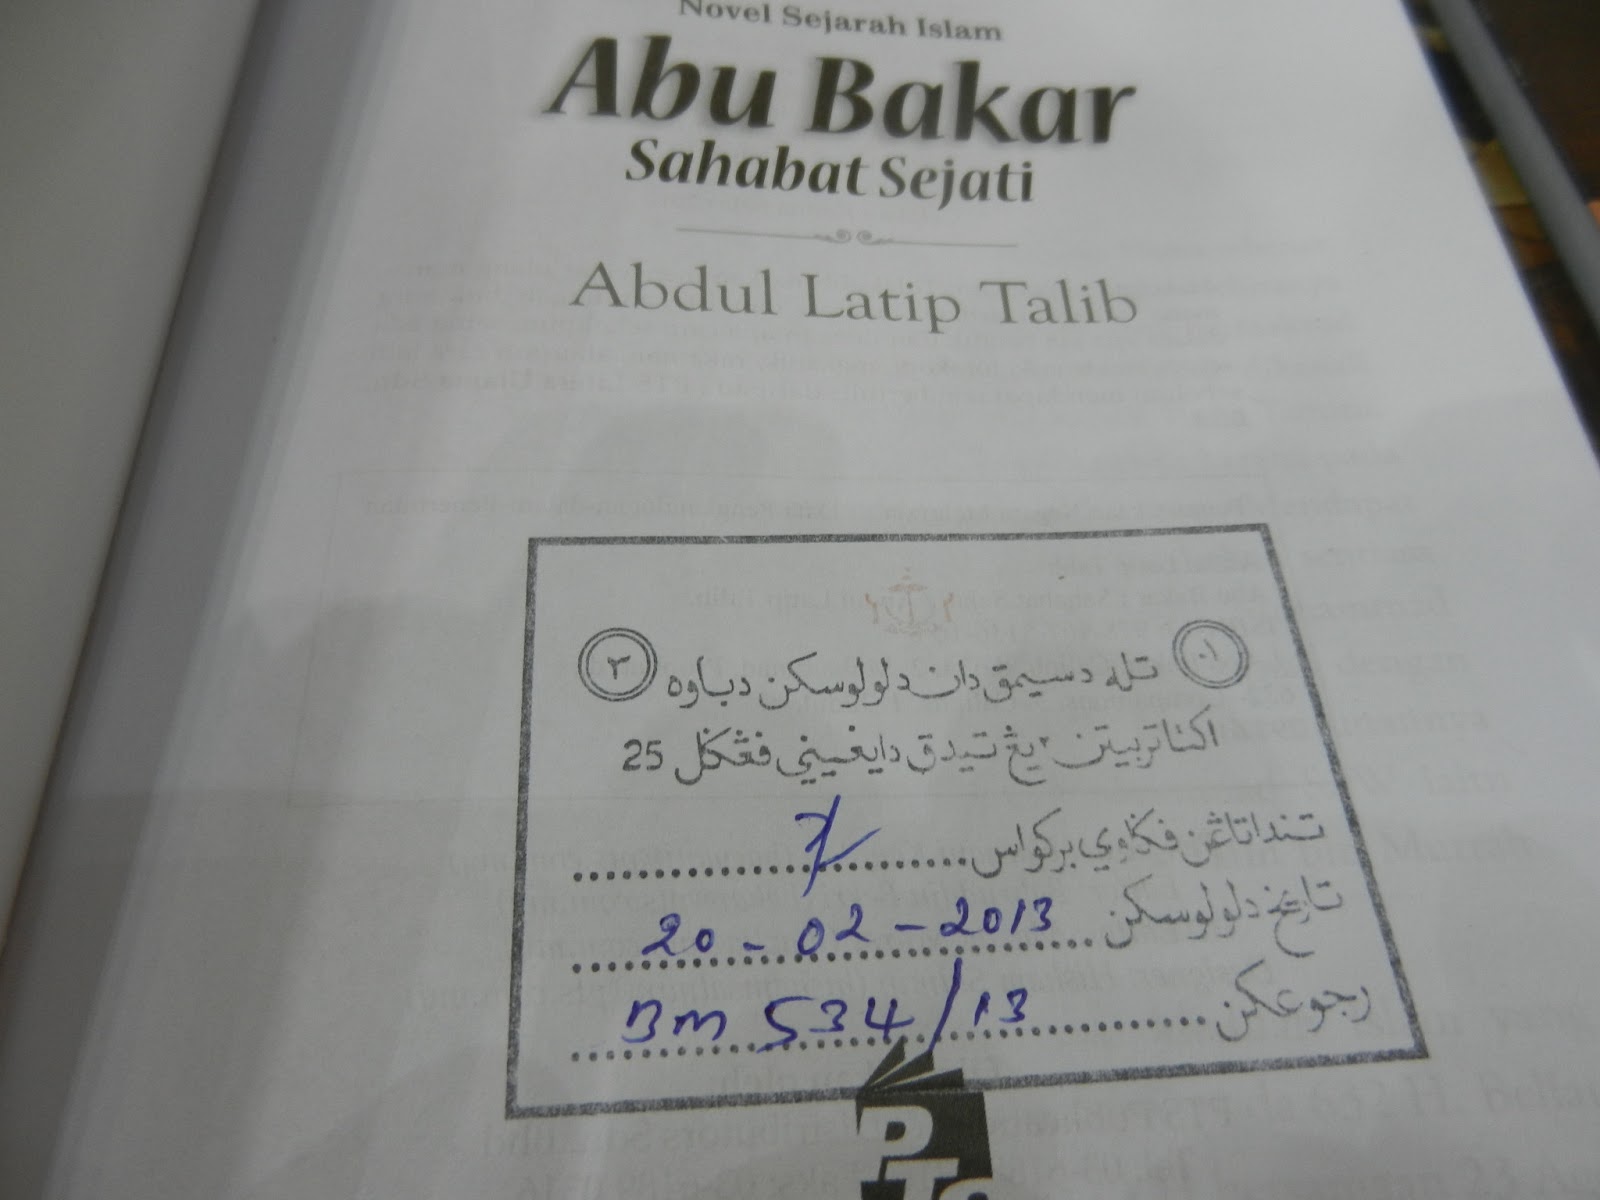 Novel Sejarah Islam
Abu Bakar
Sahabat Sejati
Abdul Latip Talib
تله دسيمق دان دلولوسکن دباوه ٣
اکتا تربيتن٢ يڠ تيدق دايڠيني ڤڠݢل 25
تنداتاڠن ڤݢاوي برکواس
تاريخ دلولوسکن 20 - 02 - 2013
رجوعکن BM 534/13
PTS